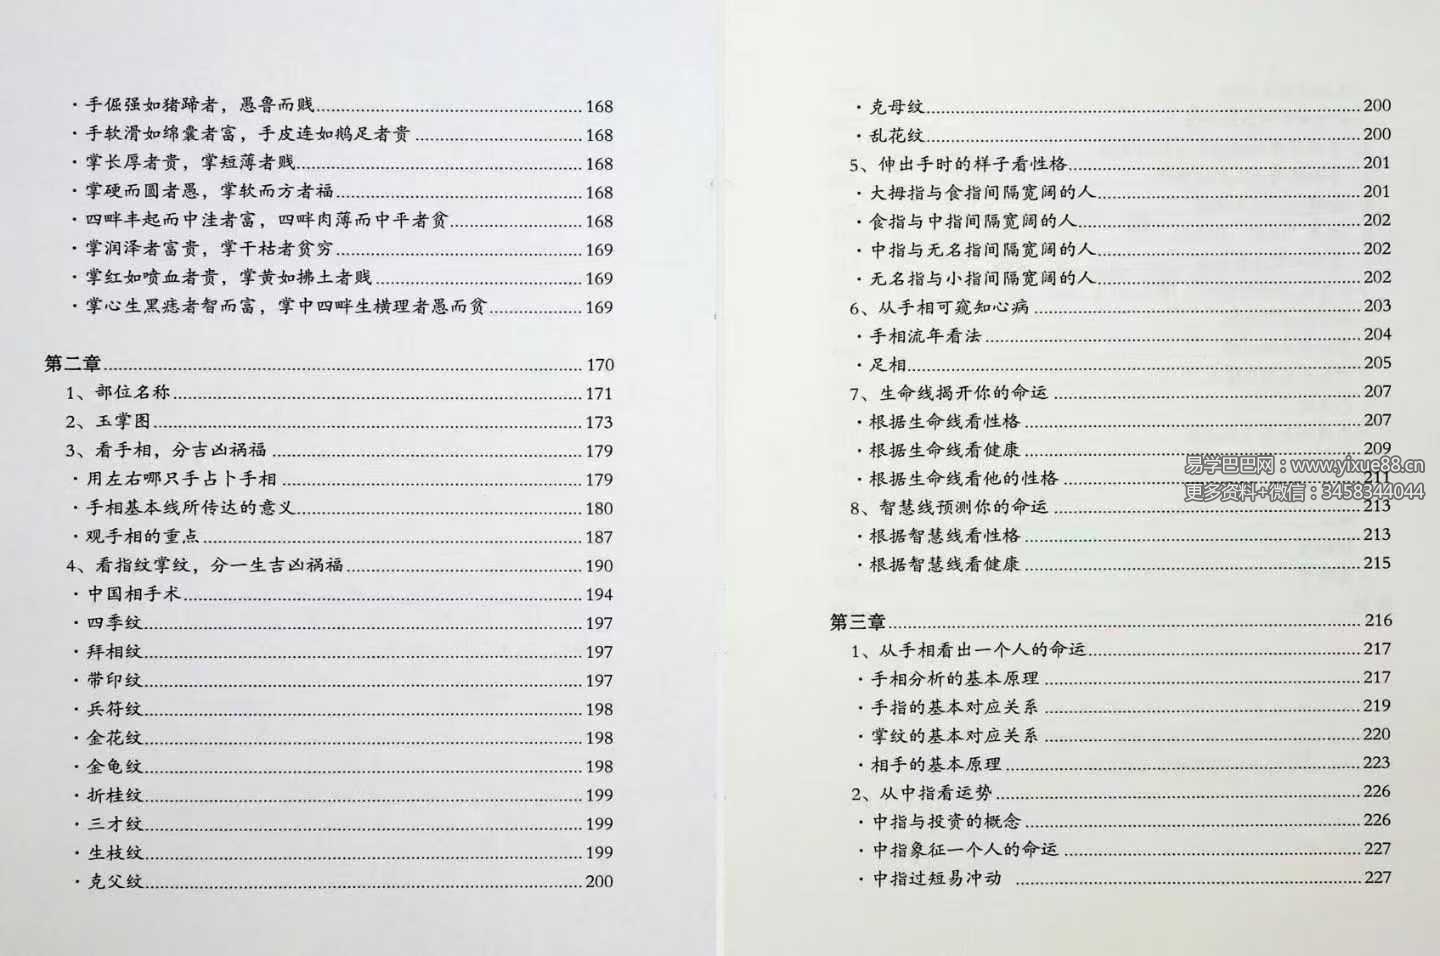 ·手倔强如猪蹄者，愚鲁而贱 168
·手软滑如绵囊者富，手皮连如鹅足者贵 168
·掌长厚者贵，掌短薄者贱 168
·掌硬而圆者愚，掌软而方者福 168
·四畔丰起而中洼者富，四畔肉薄而中平者贫 168
·掌润泽者富贵，掌干枯者贫穷 169
·掌红如喷血者贵，掌黄如拂土者贱 169
·掌心生黑痣者智而富，掌中四畔生横理者愚而贫 169
第二章 170
1、部位名称 171
2、玉掌图 173
3、看手相，分吉凶祸福 179
·用左右哪只手占卜手相 179
·手相基本线所传达的意义 180
·观手相的重点 187
4、看指纹掌纹，分一生吉凶祸福 190
·中国相手术 194
·四季纹 197
·拜相纹 197
·带印纹 197
·兵符纹 198
·金花纹 198
·金龟纹 198
·折桂纹 199
·三才纹 199
·生枝纹 199
·克父纹 200
·克母纹 200
·乱花纹 200
5、伸出手时的样子看性格 201
·大拇指与食指间隔宽阔的人 201
·食指与中指间隔宽阔的人 202
·中指与无名指间隔宽阔的人 202
·无名指与小指间隔宽阔的人 202
6、从手相可窥知心病 203
·手相流年看法 204
·足相 205
7、生命线揭开你的命运 207
·根据生命线看性格 207
·根据生命线看健康 209
易学巴巴网：www.yixue88.cn
·根据生命线看他的性格 211
更多资料+微信：3458344044
8、智慧线预测你的命运 213
·根据智慧线看性格 213
·根据智慧线看健康 215
第三章 216
1、从手相看出一个人的命运 217
·手相分析的基本原理 217
·手指的基本对应关系 219
·掌纹的基本对应关系 220
·相手的基本原理 223
2、从中指看运势 226
·中指与投资的概念 226
·中指象征一个人的命运 227
·中指过短易冲动 227